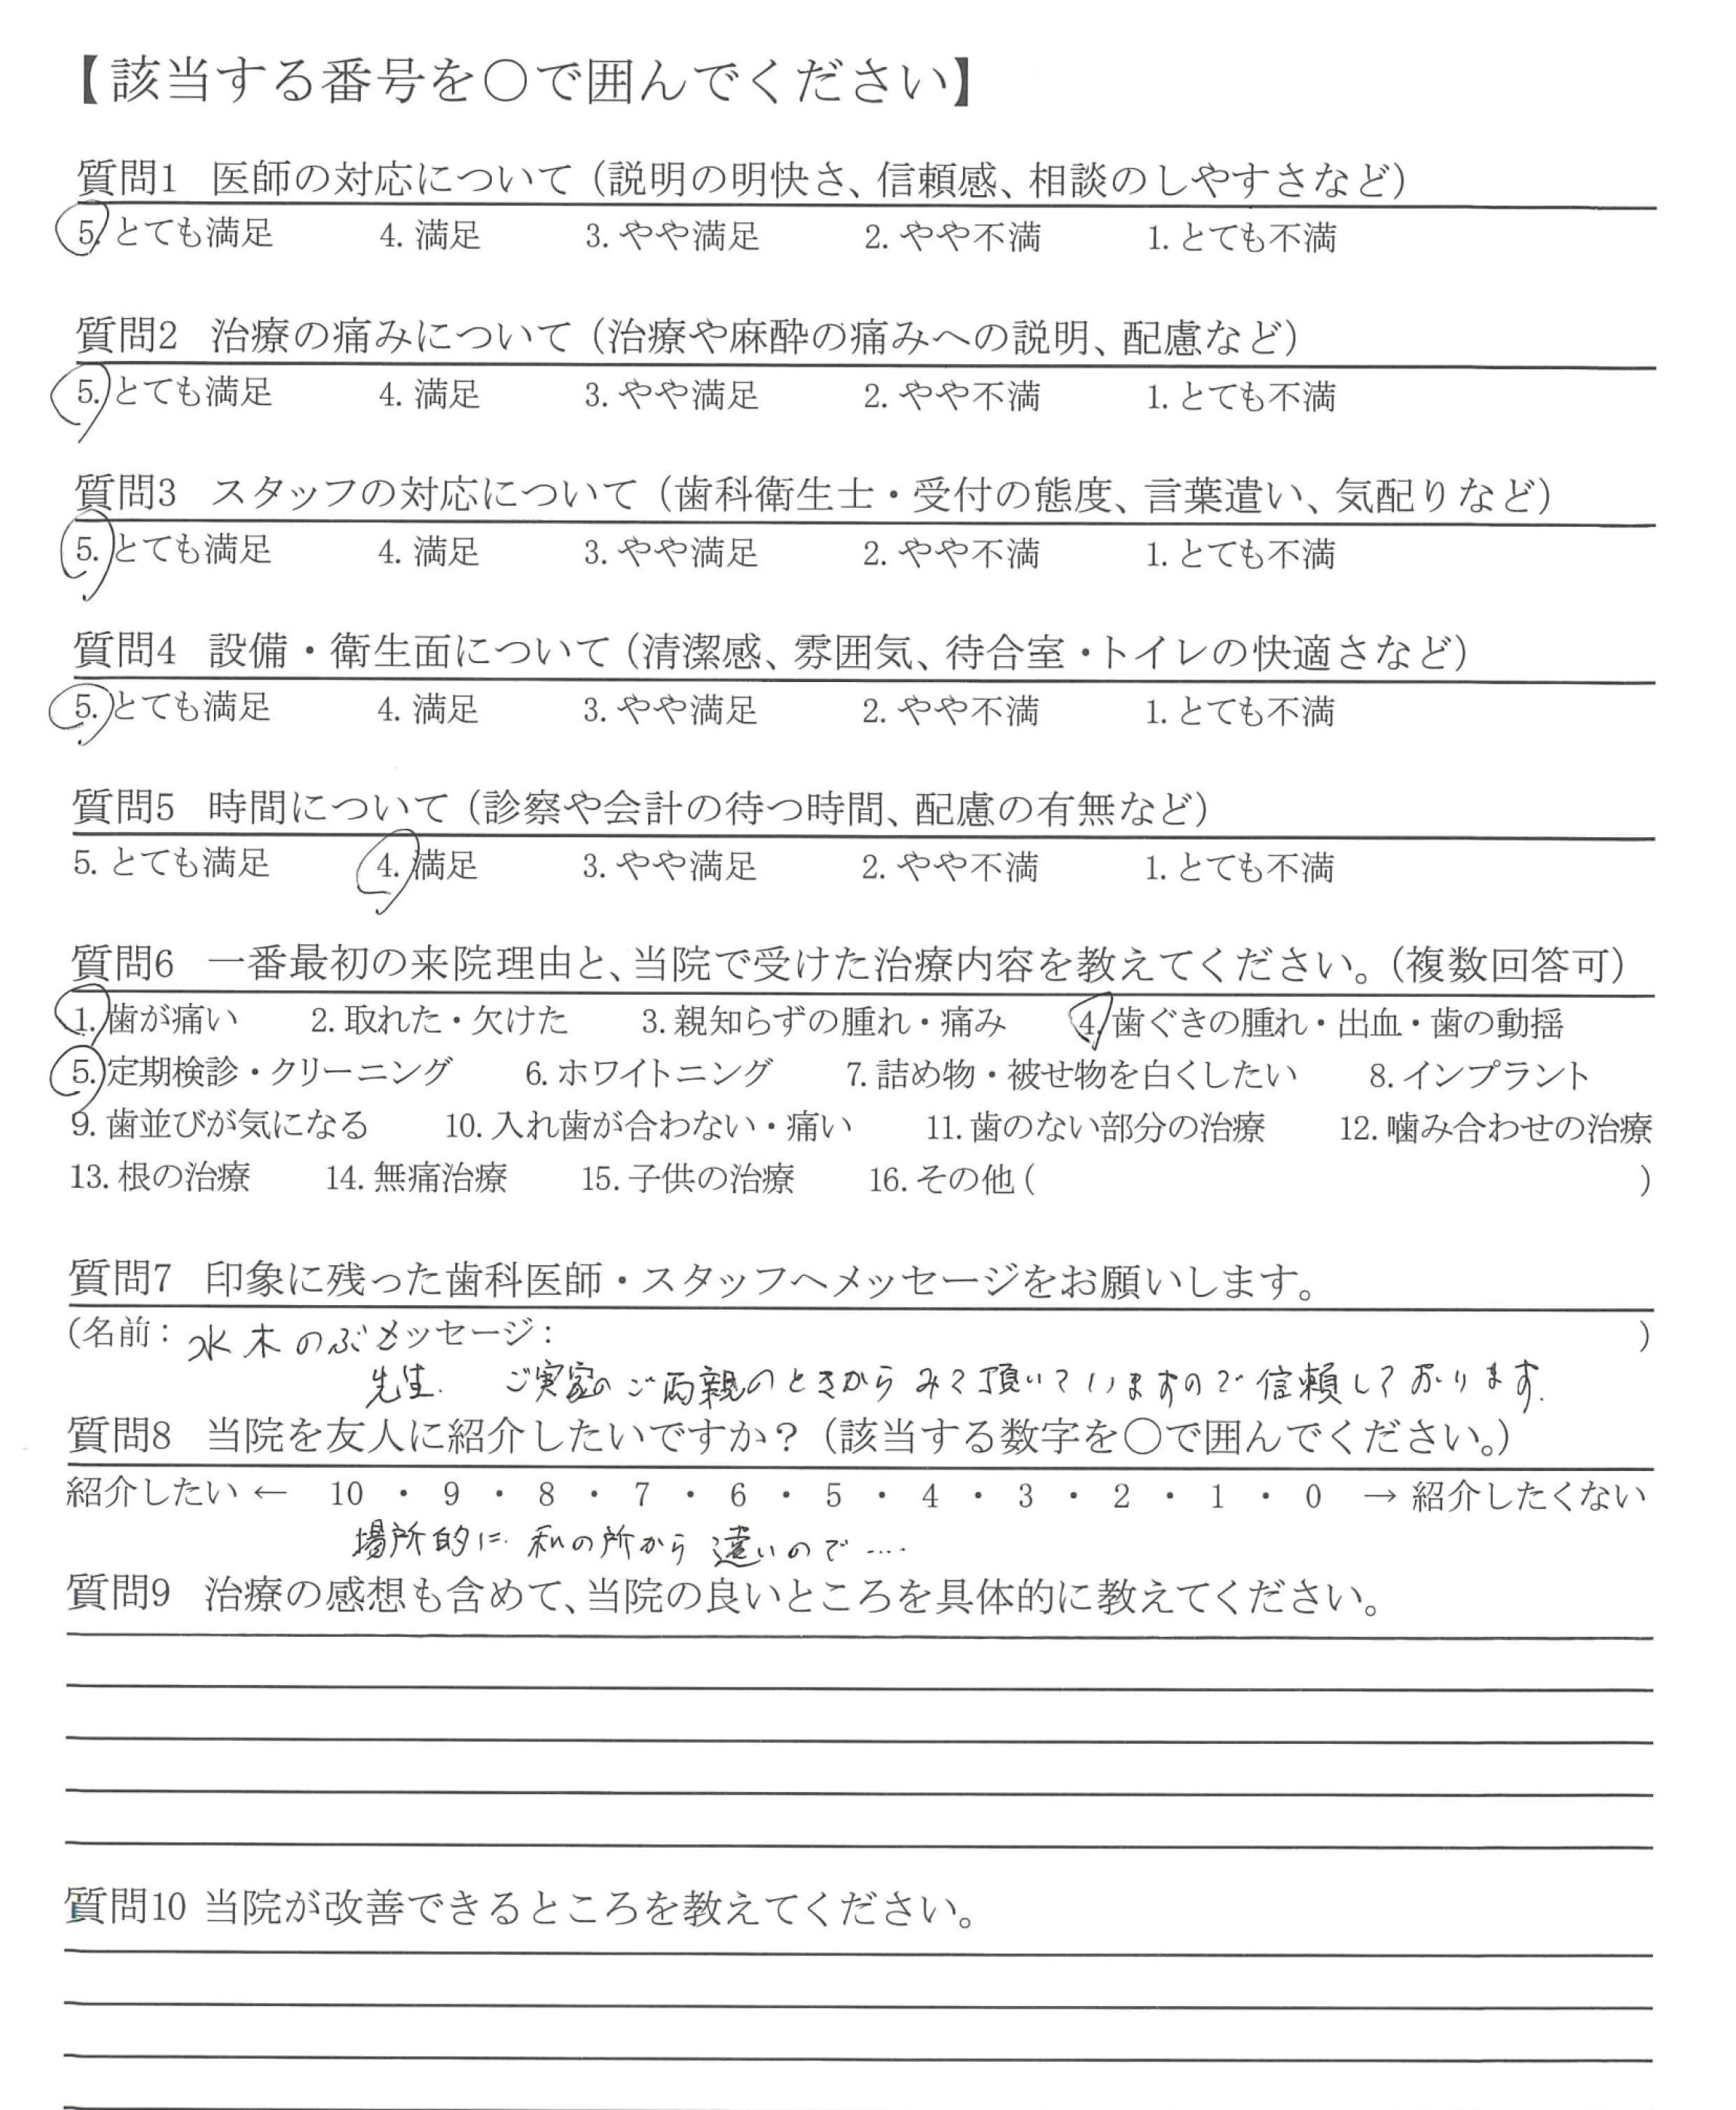 【該当する番号を○で囲んでください】
質問1 医師の対応について（説明の明快さ、信頼感、相談のしやすさなど）
5. とても満足 4. 満足 3. やや満足 2. やや不満 1. とても不満
質問2 治療の痛みについて（治療や麻酔の痛みへの説明、配慮など）
5. とても満足 4. 満足 3. やや満足 2. やや不満 1. とても不満
質問3 スタッフの対応について（歯科衛生士・受付の態度、言葉遣い、気配りなど）
5. とても満足 4. 満足 3. やや満足 2. やや不満 1. とても不満
質問4 設備・衛生面について（清潔感、雰囲気、待合室・トイレの快適さなど）
5. とても満足 4. 満足 3. やや満足 2. やや不満 1. とても不満
質問5 時間について（診察や会計の待つ時間、配慮の有無など）
5. とても満足 4. 満足 3. やや満足 2. やや不満 1. とても不満
質問6 一番最初の来院理由と、当院で受けた治療内容を教えてください。（複数回答可）
1. 歯が痛い 2. 取れた・欠けた 3. 親知らずの腫れ・痛み 4. 歯ぐきの腫れ・出血・歯の動揺
5. 定期検診・クリーニング 6. ホワイトニング 7. 詰め物・被せ物を白くしたい 8. インプラント
9. 歯並びが気になる 10. 入れ歯が合わない・痛い 11. 歯のない部分の治療 12. 噛み合わせの治療
13. 根の治療 14. 無痛治療 15. 子供の治療 16. その他（ ）
質問7 印象に残った歯科医師・スタッフへメッセージをお願いします。
（名前： 水木のぶ メッセージ： ）
先生. ご実家のご両親のときからみて頂いていますので信頼しております.
質問8 当院を友人に紹介したいですか？（該当する数字を○で囲んでください。）
紹介したい ← 10 ・ 9 ・ 8 ・ 7 ・ 6 ・ 5 ・ 4 ・ 3 ・ 2 ・ 1 ・ 0 → 紹介したくない
場所的に. 私の所から遠いので....
質問9 治療の感想も含めて、当院の良いところを具体的に教えてください。
質問10 当院が改善できるところを教えてください。